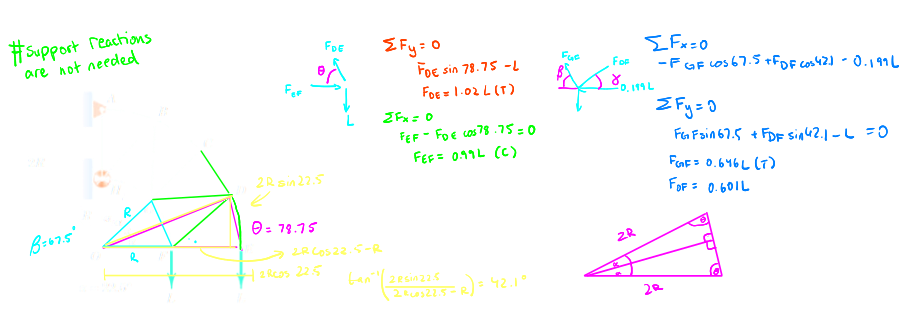 #support reactions
are not needed
F_DE
θ
F_EF
L
ΣFy = 0
F_DE sin 78.75 - L
F_DE = 1.02L (T)
ΣFx = 0
F_EF - F_DE cos 78.75 = 0
F_EF = 0.199L (C)
F_GF
F_DF
β
γ
0.199L
L
ΣFx = 0
-F_GF cos 67.5 + F_DF cos 42.1 - 0.199L
ΣFy = 0
F_GF sin 67.5 + F_DF sin 42.1 - L = 0
F_GF = 0.646L (T)
F_DF = 0.601L
2R sin 22.5
β = 67.5°
R
θ = 78.75
R
2R cos 22.5 - R
2R cos 22.5
tan⁻¹(2R sin 22.5 / 2R cos 22.5 - R) = 42.1°
2R
θ
α
α
θ
2R